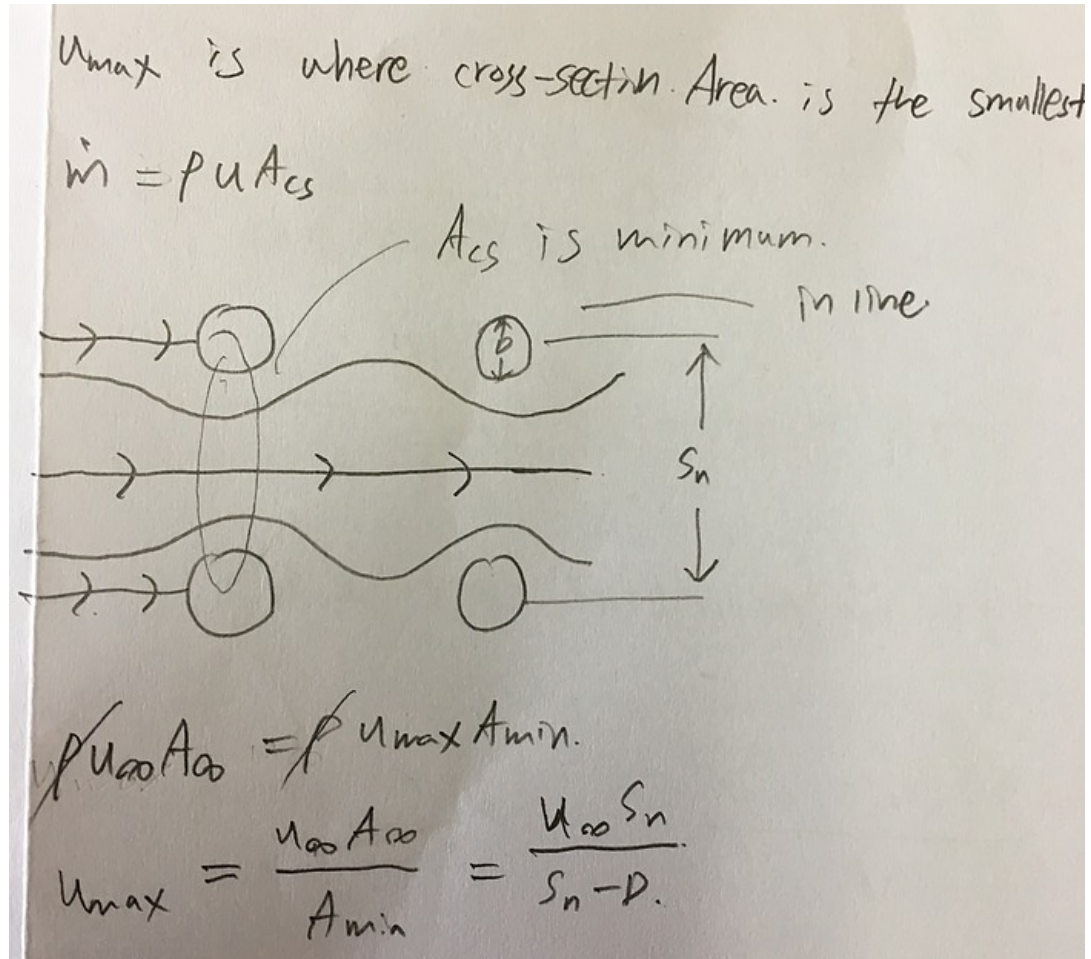 Umax is where cross-section. Area. is the smallest
ṁ = ρ u Acs
Acs is minimum.
in line
D
Sn
ρ u∞ A∞ = ρ umax Amin.
umax = u∞ A∞ / Amin = u∞ Sn / Sn - D.